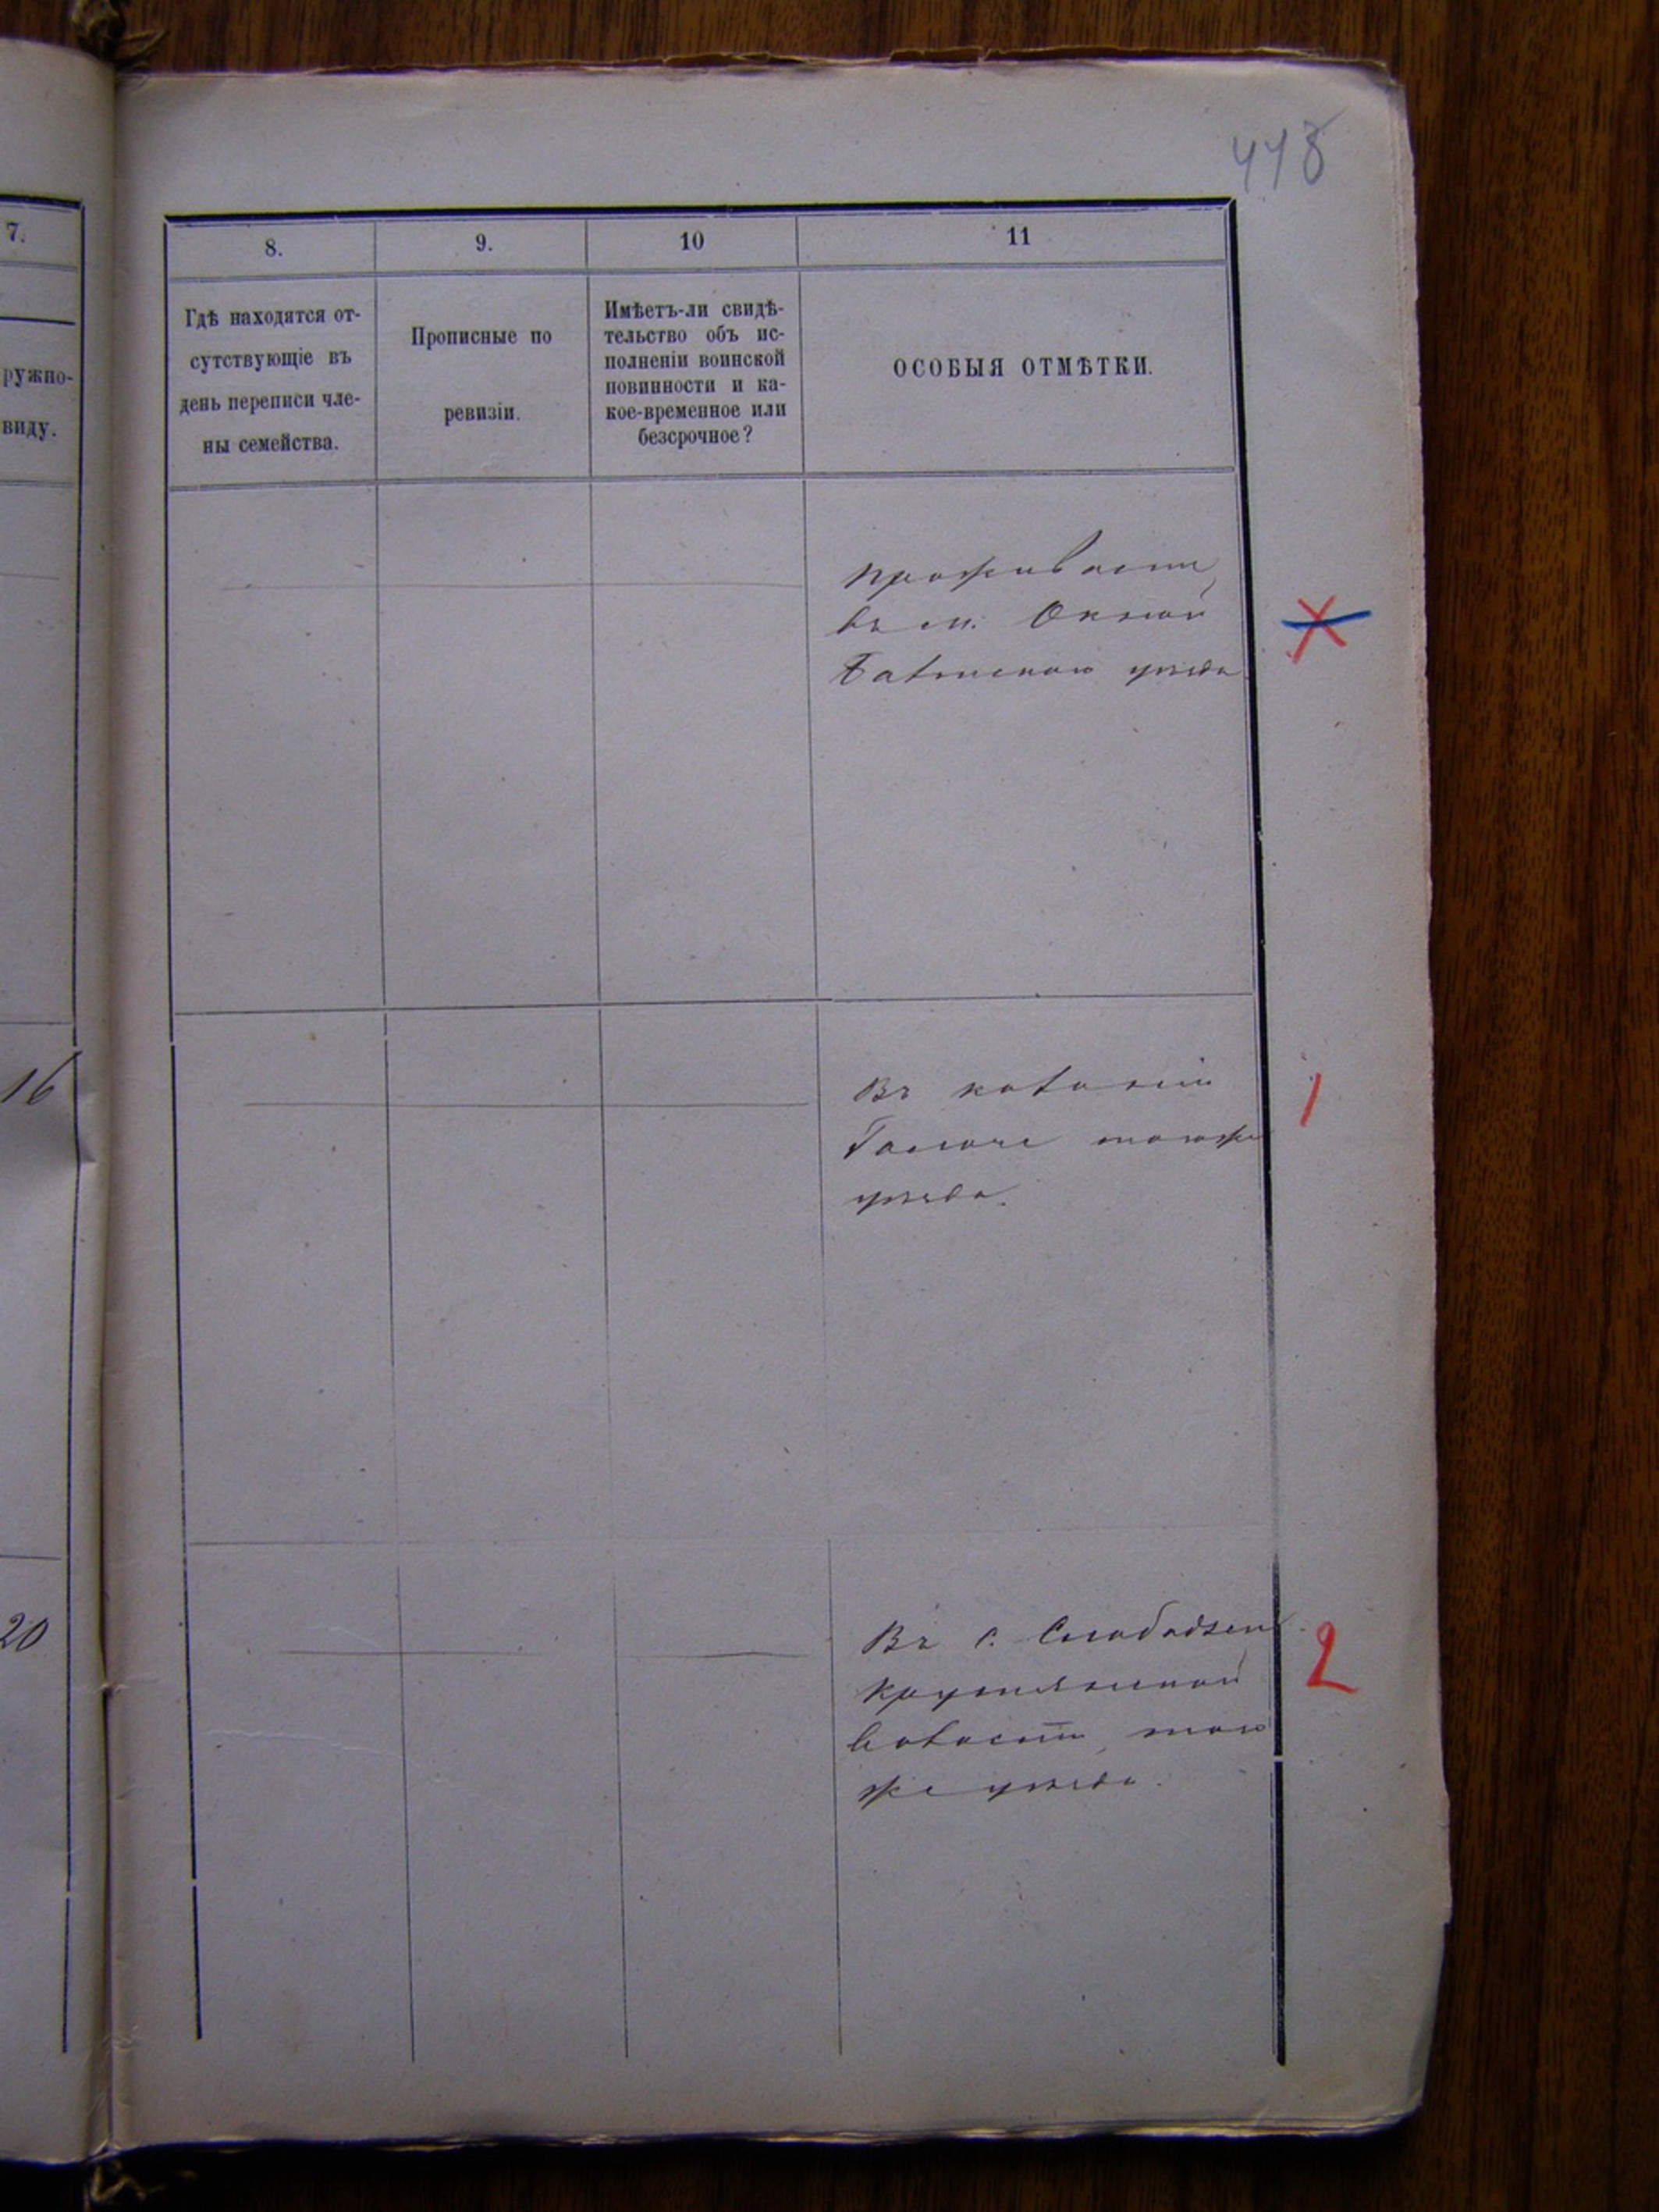 448
7.
8.
9.
10
11
ружно-
виду.
Гдѣ находятся от-
сутствующіе въ
день переписи чле-
ны семейства.
Прописные по
ревизіи.
Имѣетъ-ли свидѣ-
тельство объ ис-
полненіи воинской
повинности и ка-
кое-временное или
безсрочное?
ОСОБЫЯ ОТМѢТКИ.
проживаетъ
въ м. Окной
Балтскаго уѣзда
16
Въ колоніи
тогоже
уѣзда.
1
20
Въ с.
волости того
же уѣзда.
2